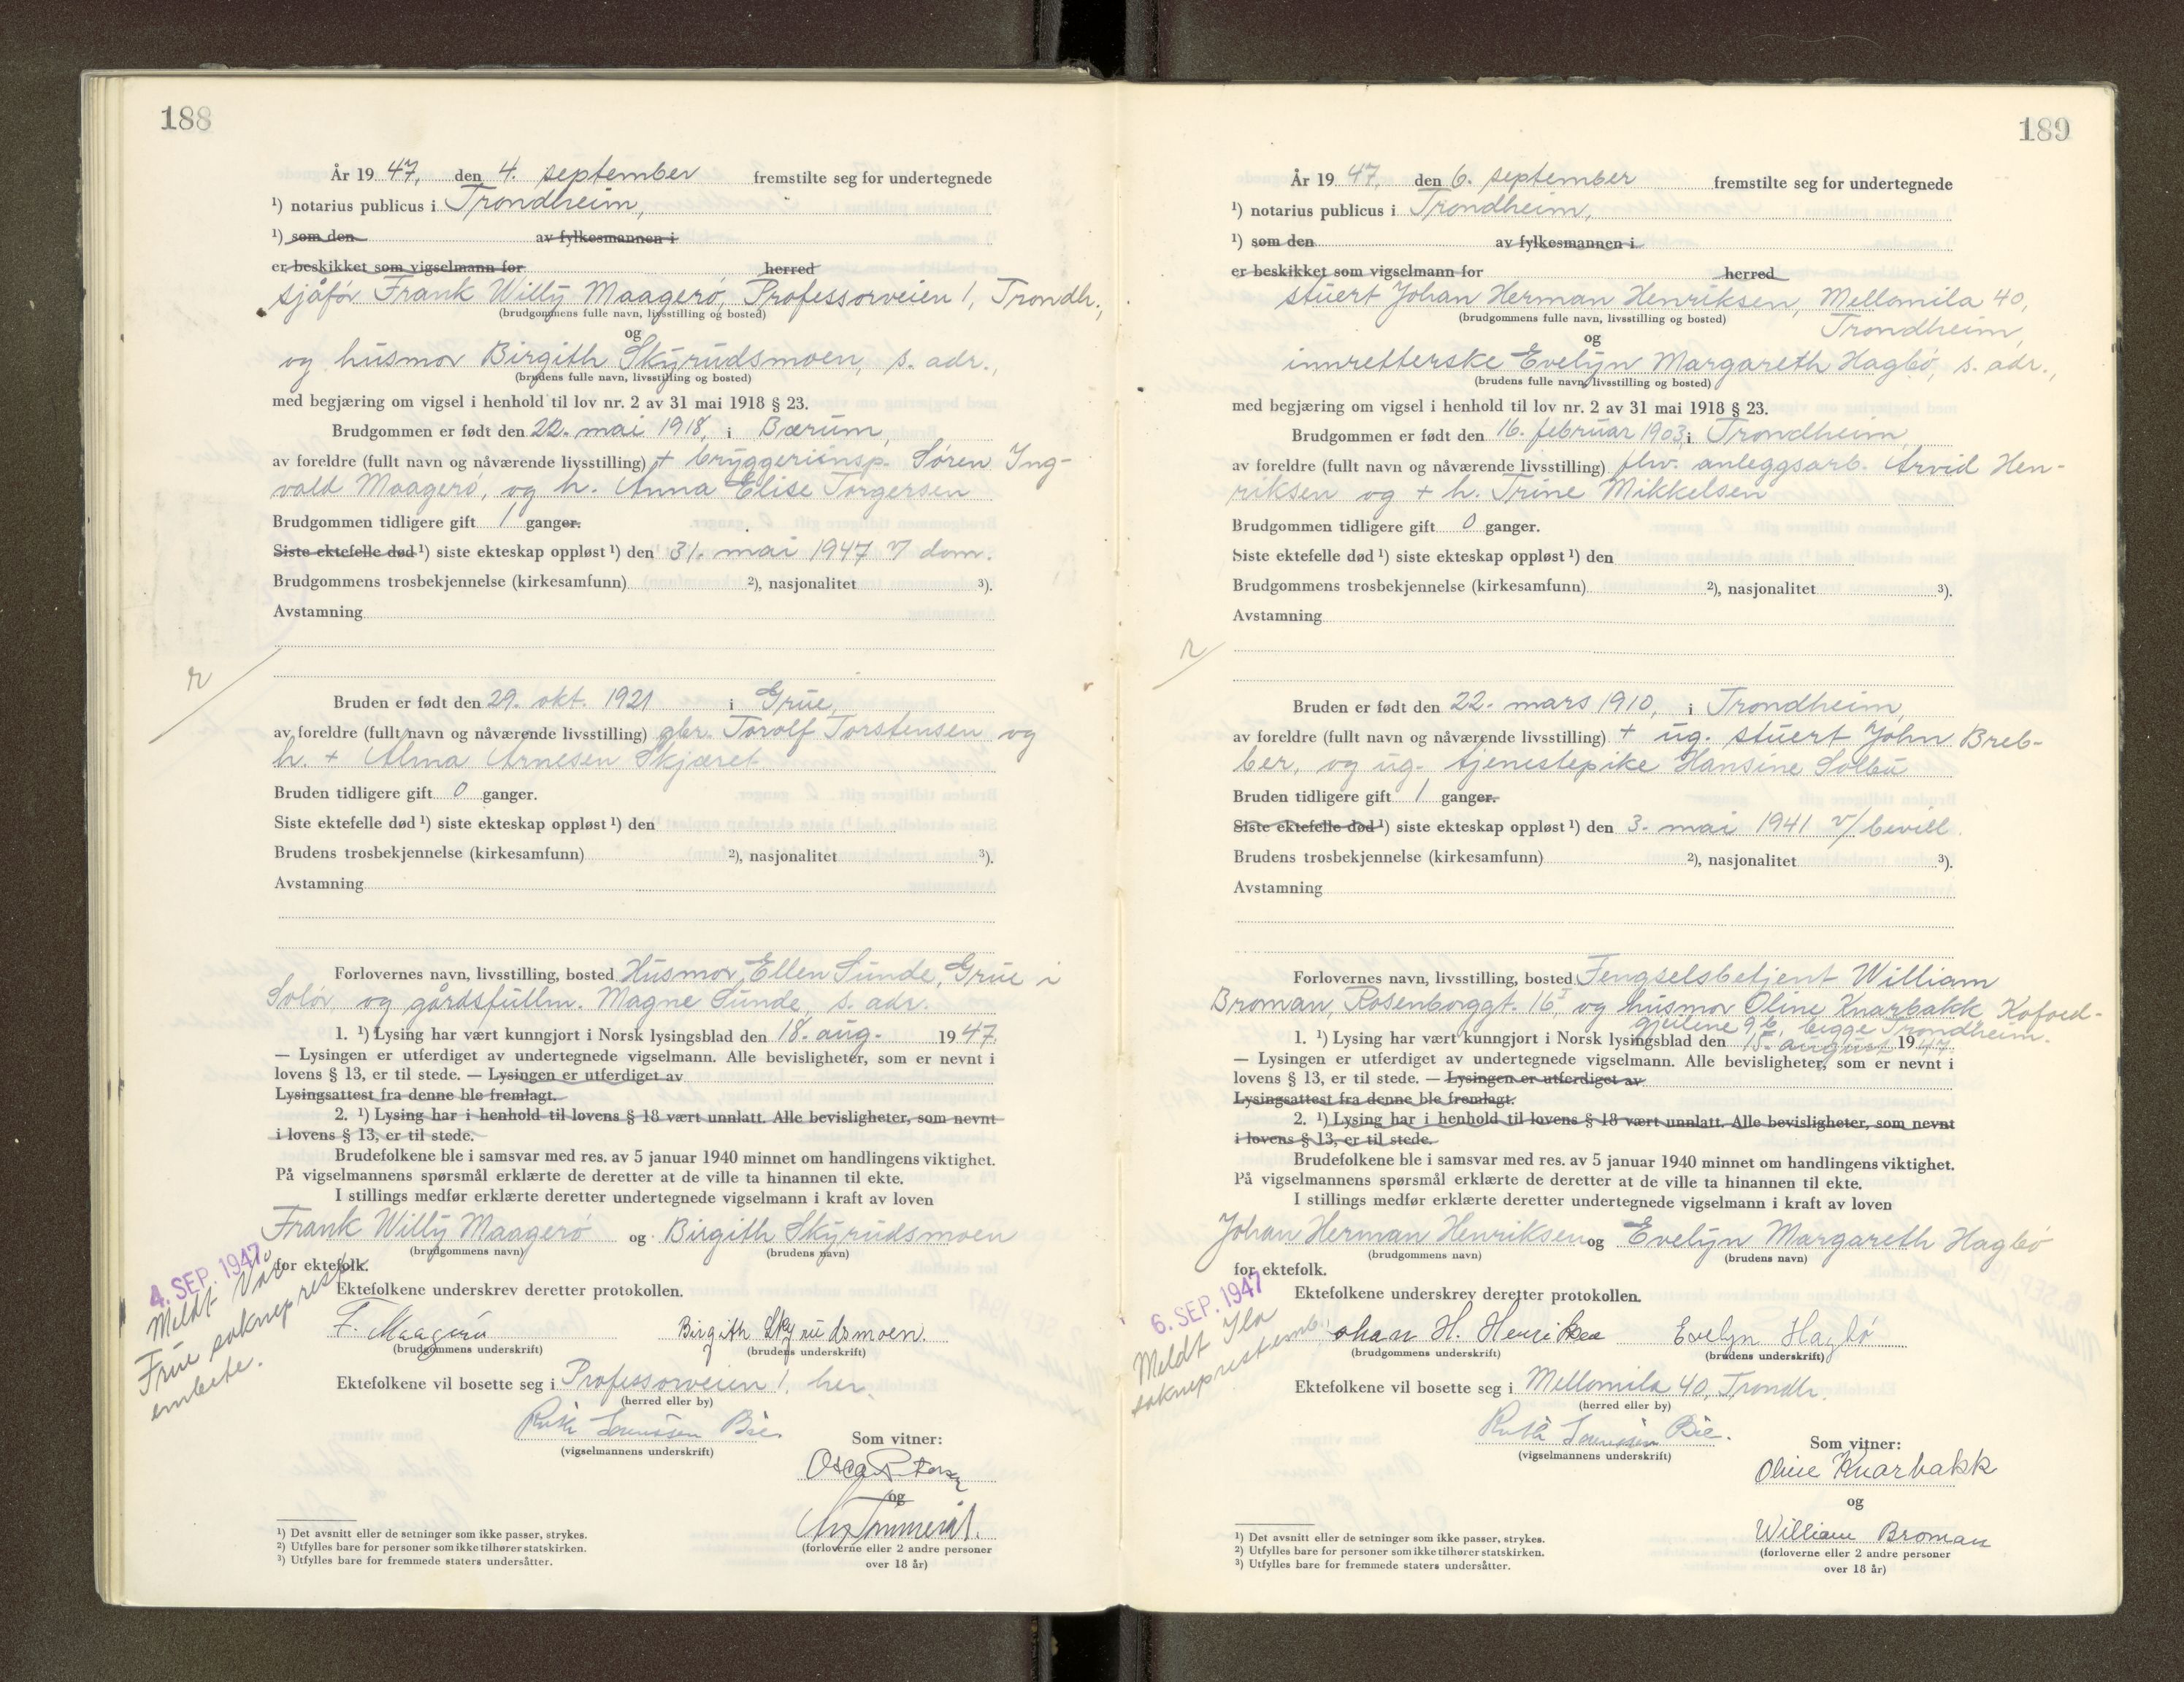 188
År 19 47, den 4. september fremstilte seg for undertegnede
¹) notarius publicus i Trondheim,
¹) som den av fylkesmannen i
er beskikket som vigselmann for herred
sjåfør Frank Willy Maagerø, Professorveien 1, Trondh.,
(brudgommens fulle navn, livsstilling og bosted)
og
og husmor Birgith Skyrudsmoen, s. adr.,
(brudens fulle navn, livsstilling og bosted)
med begjæring om vigsel i henhold til lov nr. 2 av 31 mai 1918 § 23.
Brudgommen er født den 22. mai 1918, i Bærum,
av foreldre (fullt navn og nåværende livsstilling) + bryggeriinsp. Søren Ing-
vald Maagerø, og h. Anna Elise Torgersen
Brudgommen tidligere gift 1 ganger.
Siste ektefelle død ¹) siste ekteskap oppløst ¹) den 31. mai 1947 v dom.
Brudgommens trosbekjennelse (kirkesamfunn) ²), nasjonalitet ³).
Avstamning
r
Bruden er født den 29. okt. 1921 i Grue,
av foreldre (fullt navn og nåværende livsstilling) gbr. Torolf Torstensen og
h. + Alma Arnesen Skjæret
Bruden tidligere gift 0 ganger.
Siste ektefelle død ¹) siste ekteskap oppløst ¹) den
Brudens trosbekjennelse (kirkesamfunn) ²), nasjonalitet ³).
Avstamning
Forlovernes navn, livsstilling, bosted Husmor Ellen Sunde, Grue i
Solør og gårdsfullm. Magne Sunde, s. adr.
1. ¹) Lysing har vært kunngjort i Norsk lysingsblad den 18. aug. 1947.
— Lysingen er utferdiget av undertegnede vigselmann. Alle bevisligheter, som er nevnt i
lovens § 13, er til stede. — Lysingen er utferdiget av
Lysingsattest fra denne ble fremlagt.
2. ¹) Lysing har i henhold til lovens § 18 vært unnlatt. Alle bevisligheter, som nevnt
i lovens § 13, er til stede.
Brudefolkene ble i samsvar med res. av 5 januar 1940 minnet om handlingens viktighet.
På vigselmannens spørsmål erklærte de deretter at de ville ta hinannen til ekte.
I stillings medfør erklærte deretter undertegnede vigselmann i kraft av loven
Frank Willy Maagerø og Birgith Skyrudsmoen
(brudgommens navn) (brudens navn)
for ektefolk.
4. SEP. 1947
Meldt Vår
Frue sokneprest
embete.
Ektefolkene underskrev deretter protokollen.
F. Maagerø Birgith Skyrudsmoen.
(brudgommens underskrift) (brudens underskrift)
Ektefolkene vil bosette seg i Professorveien 1, her.
(herred eller by)
Ruth Sorenssen Bie.
(vigselmannens underskrift)
Som vitner:
og
(forloverne eller 2 andre personer
over 18 år)
¹) Det avsnitt eller de setninger som ikke passer, strykes.
²) Utfylles bare for personer som ikke tilhører statskirken.
³) Utfylles bare for fremmede staters undersåtter.
189
År 19 47, den 6. september fremstilte seg for undertegnede
¹) notarius publicus i Trondheim,
¹) som den av fylkesmannen i
er beskikket som vigselmann for herred
stuert Johan Herman Henriksen, Mellomila 40,
(brudgommens fulle navn, livsstilling og bosted)
Trondheim,
og
innretterske Evelyn Margareth Hagbø, s. adr.,
(brudens fulle navn, livsstilling og bosted)
med begjæring om vigsel i henhold til lov nr. 2 av 31 mai 1918 § 23.
Brudgommen er født den 16. februar 1903, i Trondheim,
av foreldre (fullt navn og nåværende livsstilling) fhv. anleggsarb. Arvid Hen-
riksen og + h. Trine Mikkelsen
Brudgommen tidligere gift 0 ganger.
Siste ektefelle død ¹) siste ekteskap oppløst ¹) den
Brudgommens trosbekjennelse (kirkesamfunn) ²), nasjonalitet ³).
Avstamning
r
Bruden er født den 22. mars 1910, i Trondheim,
av foreldre (fullt navn og nåværende livsstilling) + ug. stuert John Breb-
ber, og ug. tjenestepike Hansine Solbu
Bruden tidligere gift 1 ganger.
Siste ektefelle død ¹) siste ekteskap oppløst ¹) den 3. mai 1941 v/bevill.
Brudens trosbekjennelse (kirkesamfunn) ²), nasjonalitet ³).
Avstamning
Forlovernes navn, livsstilling, bosted Fengselsbetjent William
Broman, Rosenborggt. 16ᴵ, og husmor Oline Knarbakk, Kofoed-
gjeilene 9b, begge Trondheim.
1. ¹) Lysing har vært kunngjort i Norsk lysingsblad den 15. august 1947
— Lysingen er utferdiget av undertegnede vigselmann. Alle bevisligheter, som er nevnt i
lovens § 13, er til stede. — Lysingen er utferdiget av
Lysingsattest fra denne ble fremlagt.
2. ¹) Lysing har i henhold til lovens § 18 vært unnlatt. Alle bevisligheter, som nevnt
i lovens § 13, er til stede.
Brudefolkene ble i samsvar med res. av 5 januar 1940 minnet om handlingens viktighet.
På vigselmannens spørsmål erklærte de deretter at de ville ta hinannen til ekte.
I stillings medfør erklærte deretter undertegnede vigselmann i kraft av loven
Johan Herman Henriksen og Evelyn Margareth Hagbø
(brudgommens navn) (brudens navn)
for ektefolk.
6. SEP. 1947
Meldt Ila
sokneprestemb.
Ektefolkene underskrev deretter protokollen.
Johan H. Henriksen Evelyn Hagbø
(brudgommens underskrift) (brudens underskrift)
Ektefolkene vil bosette seg i Mellomila 40, Trondh.
(herred eller by)
Ruth Sorenssen Bie.
(vigselmannens underskrift)
Som vitner:
Oline Knarbakk
og
William Broman
(forloverne eller 2 andre personer
over 18 år)
¹) Det avsnitt eller de setninger som ikke passer, strykes.
²) Utfylles bare for personer som ikke tilhører statskirken.
³) Utfylles bare for fremmede staters undersåtter.